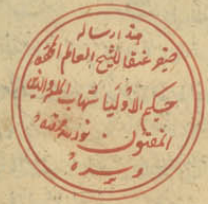 هذه رساله
صفير عنقا للشيخ العالم المحقق
حكيم الاوليا شهاب الملة والدين
المقتول نور الله مرقده